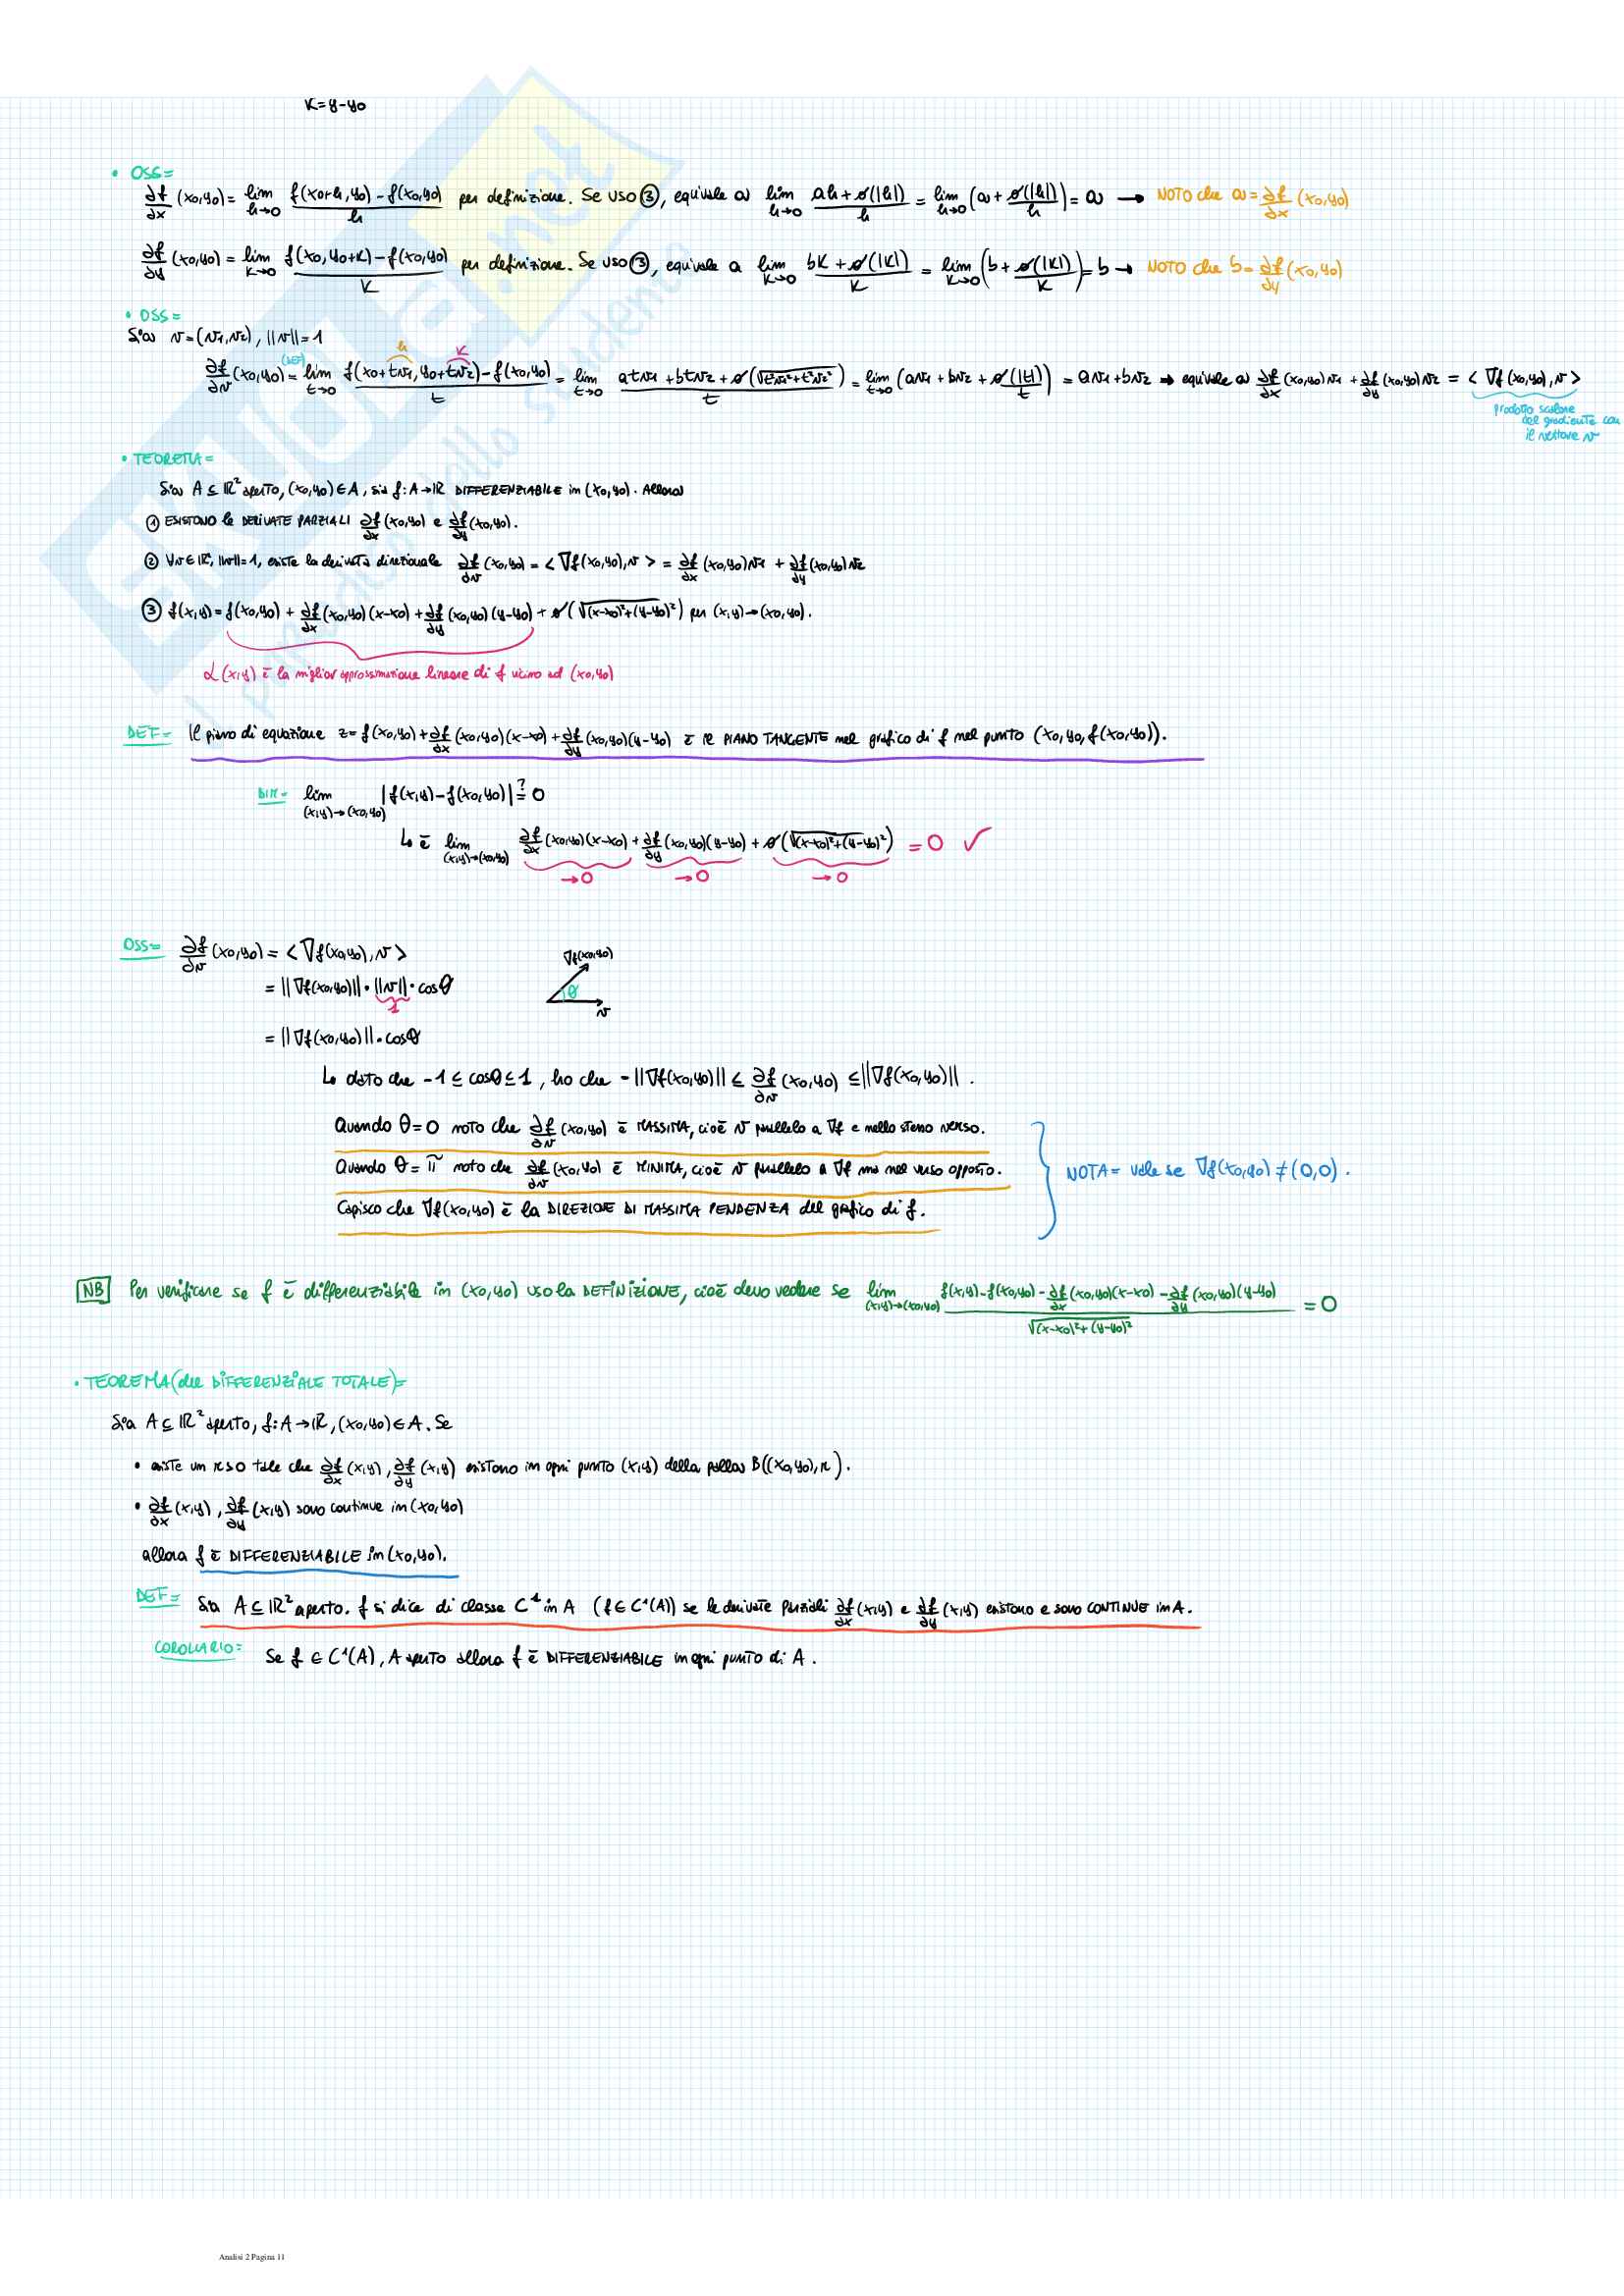 K=y-y0
• OSS=
∂f/∂x (x0,y0) = lim h→0 (f(x0+h,y0)-f(x0,y0))/h per definizione. Se uso ③, equivale a lim h→0 (ah+o(|h|))/h = lim h→0 (a+o(|h|)/h) = a → NOTO che a=∂f/∂x (x0,y0)
∂f/∂y (x0,y0) = lim K→0 (f(x0,y0+K)-f(x0,y0))/K per definizione. Se uso ③, equivale a lim K→0 (bK+o(|K|))/K = lim K→0 (b+o(|K|)/K) = b → NOTO che b=∂f/∂y (x0,y0)
• OSS=
Sia v=(v1,v2), ||v||=1
h K
∂f/∂v (x0,y0) =(DEF) lim t→0 (f(x0+tv1,y0+tv2)-f(x0,y0))/t = lim t→0 (atv1+btv2+o(√(t²v1²+t²v2²)))/t = lim t→0 (av1+bv2+o(|t|)/t) = av1+bv2 → equivale a ∂f/∂x (x0,y0)v1 + ∂f/∂y (x0,y0)v2 = <∇f(x0,y0),v>
prodotto scalare
del gradiente con
il vettore v
• TEOREMA=
Sia A⊆ℝ² aperto, (x0,y0)∈A, sia f:A→ℝ DIFFERENZIABILE in (x0,y0). Allora
① ESISTONO le DERIVATE PARZIALI ∂f/∂x (x0,y0) e ∂f/∂y (x0,y0).
② ∀v∈ℝ², ||v||=1, esiste la derivata direzionale ∂f/∂v (x0,y0) = <∇f(x0,y0),v> = ∂f/∂x (x0,y0)v1 + ∂f/∂y (x0,y0)v2
③ f(x,y) = f(x0,y0) + ∂f/∂x (x0,y0)(x-x0) + ∂f/∂y (x0,y0)(y-y0) + o(√((x-x0)²+(y-y0)²)) per (x,y)→(x0,y0).
L(x,y) è la miglior approssimazione lineare di f vicino ad (x0,y0)
DEF= Il piano di equazione z=f(x0,y0)+∂f/∂x (x0,y0)(x-x0)+∂f/∂y (x0,y0)(y-y0) è il PIANO TANGENTE nel grafico di f nel punto (x0,y0,f(x0,y0)).
DIM= lim (x,y)→(x0,y0) |f(x,y)-f(x0,y0)| =? 0
↳ è lim (x,y)→(x0,y0) ∂f/∂x (x0,y0)(x-x0) + ∂f/∂y (x0,y0)(y-y0) + o(√((x-x0)²+(y-y0)²)) = 0 ✓
→0 →0 →0
OSS= ∂f/∂v (x0,y0) = <∇f(x0,y0),v>
∇f(x0,y0)
= ||∇f(x0,y0)||·||v||·cosθ
1
θ
v
= ||∇f(x0,y0)||·cosθ
↳ dato che -1≤cosθ≤1, ho che -||∇f(x0,y0)|| ≤ ∂f/∂v (x0,y0) ≤ ||∇f(x0,y0)||.
Quando θ=0 noto che ∂f/∂v (x0,y0) è MASSIMA, cioè v parallelo a ∇f e nello stesso verso.
Quando θ=π noto che ∂f/∂v (x0,y0) è MINIMA, cioè v parallelo a ∇f ma nel verso opposto.
NOTA= vale se ∇f(x0,y0)≠(0,0).
Capisco che ∇f(x0,y0) è la DIREZIONE DI MASSIMA PENDENZA del grafico di f.
NB Per verificare se f è differenziabile in (x0,y0) uso la DEFINIZIONE, cioè devo vedere se lim (x,y)→(x0,y0) (f(x,y)-f(x0,y0)-∂f/∂x (x0,y0)(x-x0)-∂f/∂y (x0,y0)(y-y0))/√((x-x0)²+(y-y0)²) = 0
• TEOREMA(del DIFFERENZIALE TOTALE)=
Sia A⊆ℝ² aperto, f:A→ℝ, (x0,y0)∈A. Se
• esiste un r>0 tale che ∂f/∂x (x,y), ∂f/∂y (x,y) esistono in ogni punto (x,y) della palla B((x0,y0),r).
• ∂f/∂x (x,y), ∂f/∂y (x,y) sono continue in (x0,y0)
allora f è DIFFERENZIABILE in (x0,y0).
DEF= Sia A⊆ℝ² aperto. f si dice di classe C¹ in A (f∈C¹(A)) se le derivate parziali ∂f/∂x (x,y) e ∂f/∂y (x,y) esistono e sono CONTINUE in A.
COROLLARIO= Se f∈C¹(A), A aperto allora f è DIFFERENZIABILE in ogni punto di A.
Analisi 2 Pagina 11